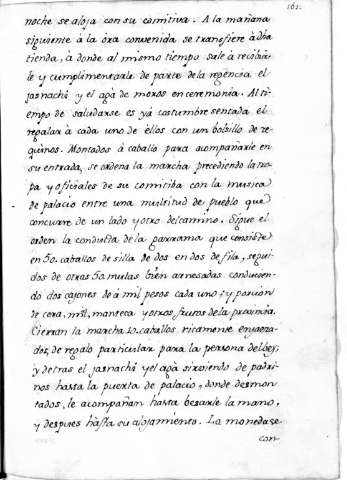 161.
noche se aloja con su comitiva. A la mañana
siguiente à la òra convenida se transfiere à dha
tienda, à donde al mismo tiempo sale à recibir-
le y cumplimentarle de parte de la regencia el
jasnachi y el agà de moros en ceremonia. Al ti-
empo de saludarse es yà costumbre sentada el
regalar à cada uno de èllos con un bolsillo de ze-
quinos. Montados à caballo para acompañarle en
su entrada, se ordena la marcha precediendo la tro-
pa y oficiales de su comitiba con la musica
de palacio entre una multitud de pueblo que
concurre de un lado y otro del camino. Sigue el
orden la conducta de la garrama que consiste
en 50. caballos de silla de dos en dos de fila, segui-
dos de otras 50. mulas bien arnesadas conducien-
do dos cajones de à mil pesos cada uno; y porcion
de cera, miel, manteca y otros frutos de la provincia.
Cierran la marcha 10. caballos ricamente enjaeza-
dos, de regalo particular para la persona del Bey;
y detras el jasnachi y el agà sirviendo de padri-
nos hasta la puerta de palacio, donde desmon-
tados, le acompañan hasta besarle la mano,
y despues hasta su alojamiento. La moneda se
con